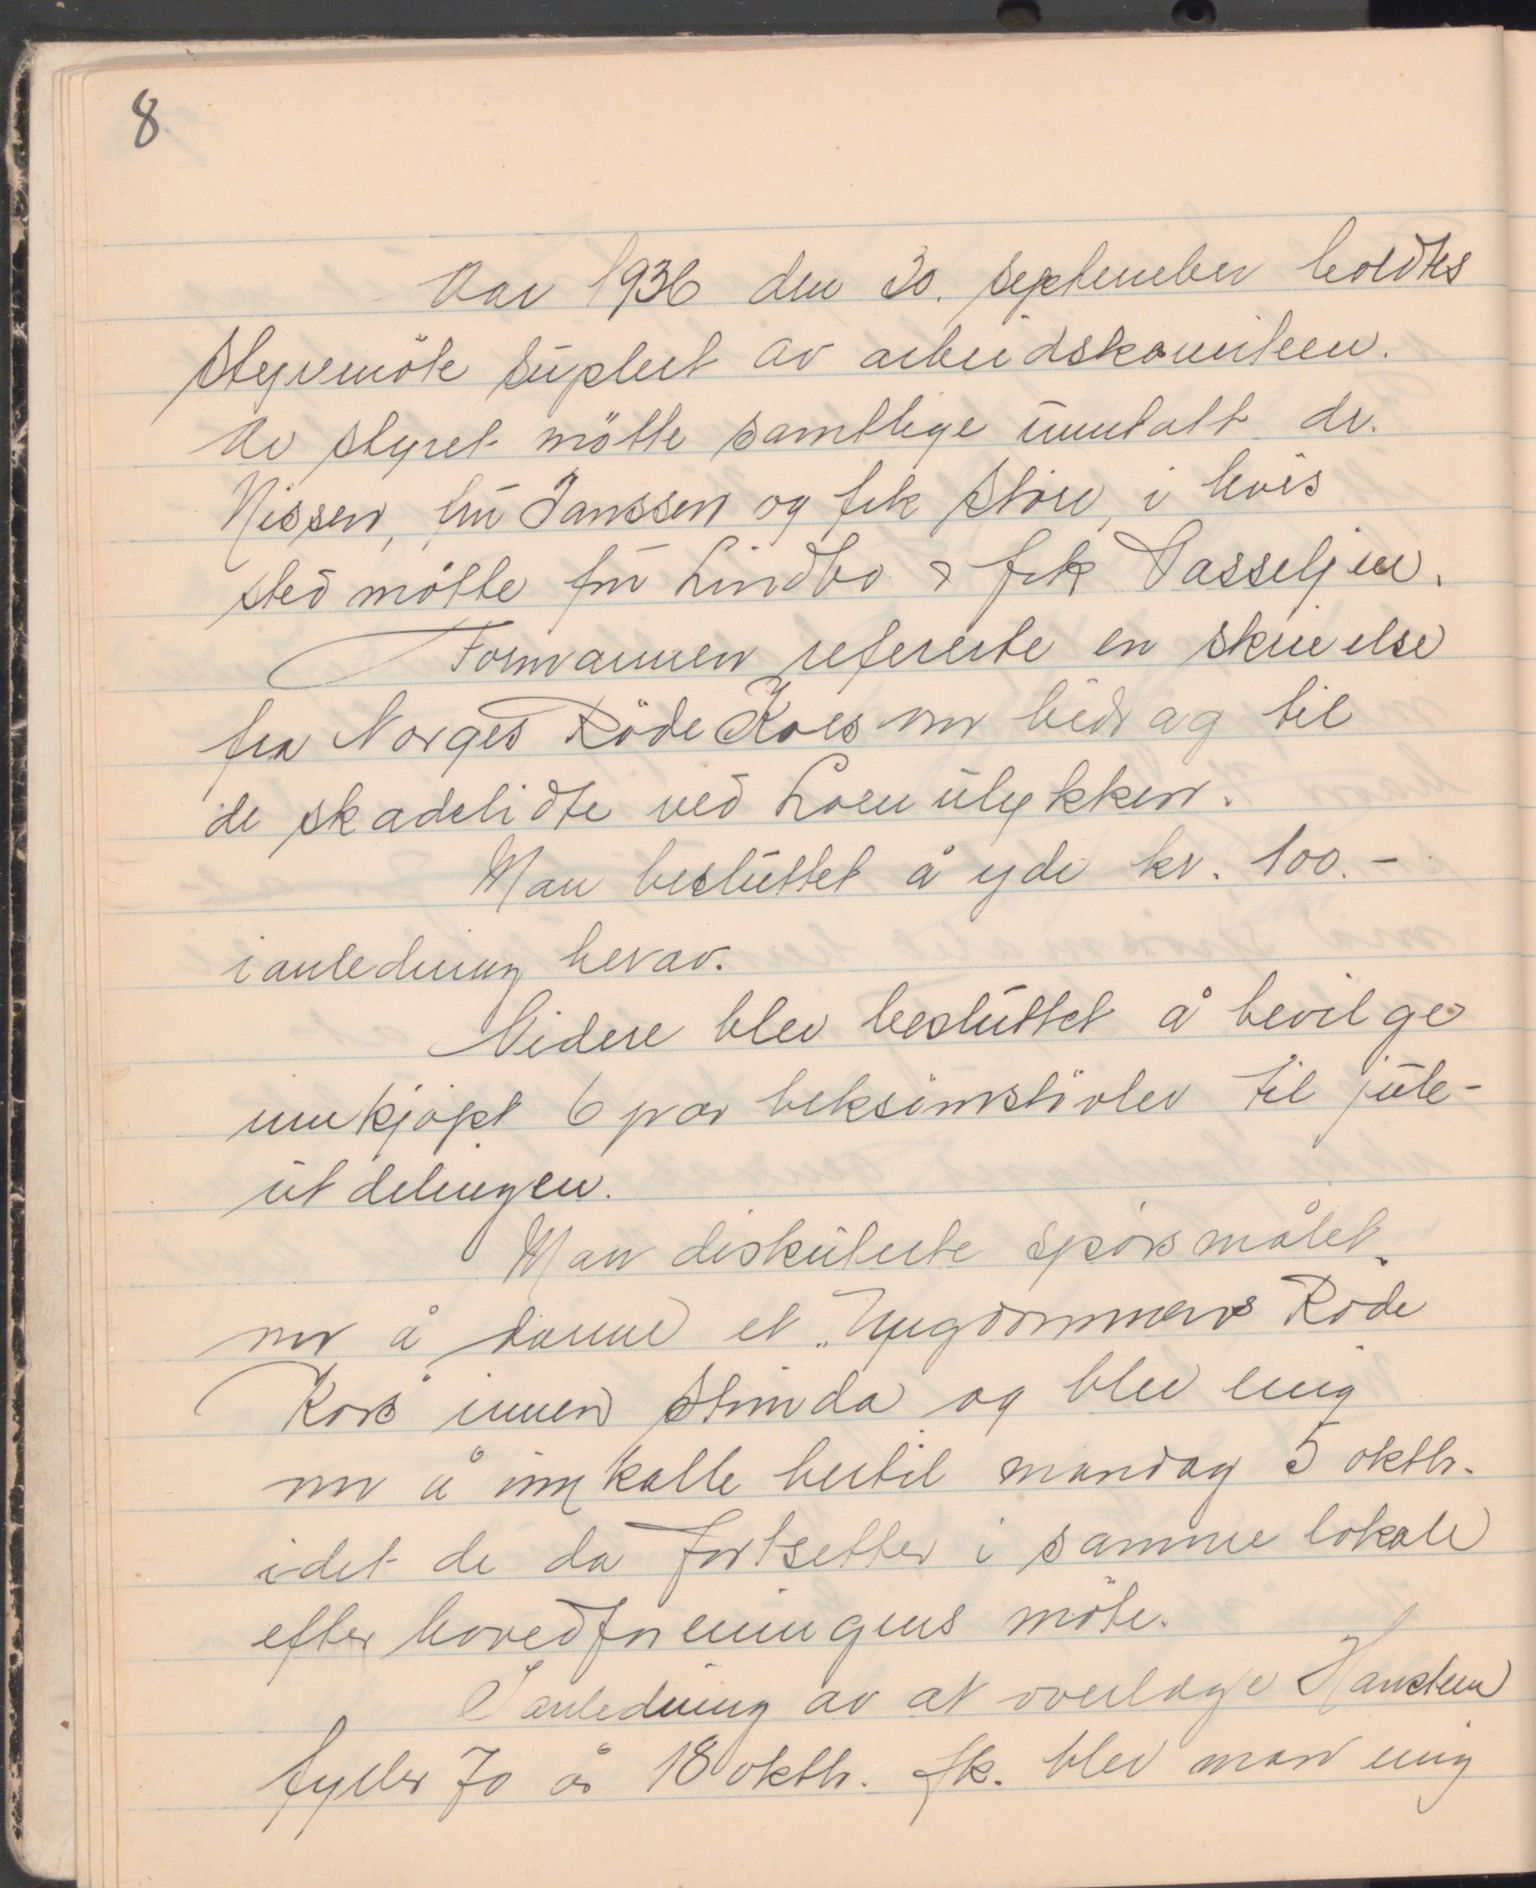 8
Aar 1936 den 30. september holdtes
styremöte suplert av arbeidskomiteen.
Av styret mötte samtlige unntatt dr.
Nissen, fru Janssen og frk Störe, i hvis
sted mötte fru Lindbo & frk Vasseljen.
Formannen refererte en skrivelse
fra Norges Röde Kors om bidrag til
de skadelidte ved Loenulykken.
Man besluttet å yde kr. 100.-
i anledning herav.
Videre blev besluttet å bevilge
innkjöpt 6 par beksömstövler til jule-
utdelingen.
Man diskuterte spörsmålet
om å danne et "Ungdommens Röde
Kors" innen Strinda og blev enig
om å innkalle hertil mandag 5 oktbr.
idet de da fortsetter i samme lokale
efter hovedforeningens möte.
I anledning av at overlæge Hanssteen
fyller 70 år 18 oktbr. fk. blev man enig